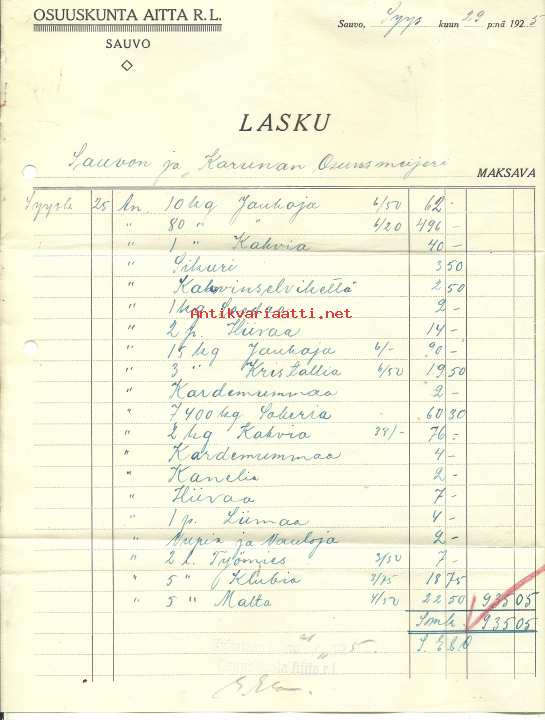 OSUUSKUNTA AITTA R.L.
SAUVO
Sauvo, Syys kuun 29 p:nä 1925
LASKU
Sauvon ja Karunan Osuusmeijeri
MAKSAVA
Syysk 25 An. 10 kg Jauhoja 6/50 62 -
" 80 " " 6/20 496 -
" 1 " Kahvia 40 -
" Sikuri 3 50
" Kahvinselvikettä 2 50
" 1 kg 2 -
Antikvariaatti.net
" 2 p. Hiivaa 14 -
" 15 kg Jauhoja 6/- 90 -
" 3 " Kristallia 6/50 19 50
" Kardemummaa 2 -
" 7400 kg Sokeria 60 30
" 2 kg Kahvia 38/- 76 -
" Kardemummaa 4 -
" Kanelia 2 -
" Hiivaa 7 -
" 1 p. Liimaa 4 -
" ja Nauloja 2 -
" 2 l. Työmies 3/50 7 -
" 5 " Klubia 3/75 18 75
" 5 " Malta 4/50 22 50 935 05
Smk. 935 05
S. E & O
Osuuskunta Aitta r.l.